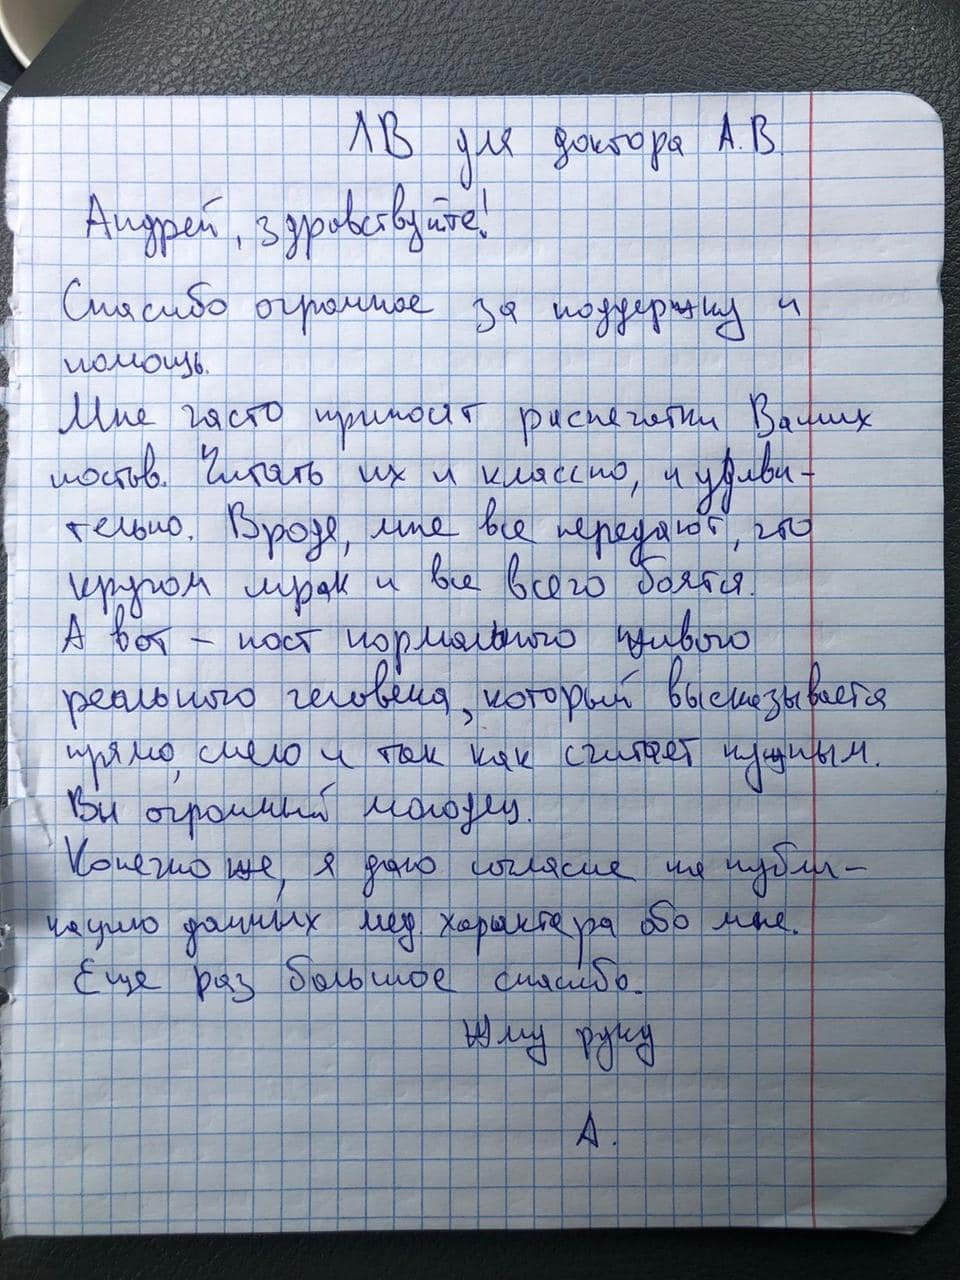 ЛВ для доктора А.В.
Андрей, здравствуйте!
Спасибо огромное за поддержку и
помощь.
Мне часто приносят распечатки Ваших
постов. Читать их и классно, и удиви-
тельно. Вроде, мне все передают, что
кругом мрак и все всего боятся.
А вот – пост нормального живого
реального человека, который высказывается
прямо, смело и так как считает нужным.
Вы огромный молодец.
Конечно же, я даю согласие на публи-
кацию данных мед. характера обо мне.
Еще раз большое спасибо.
Жму руку
А.